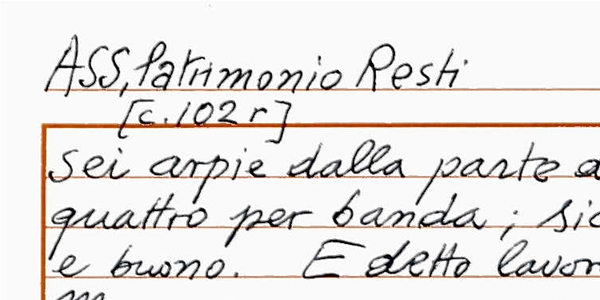 ASS, Patrimonio Resti
[c. 102 r]
sei arpie dalla parte
quattro per banda ; sic
e buono. E detto lavor